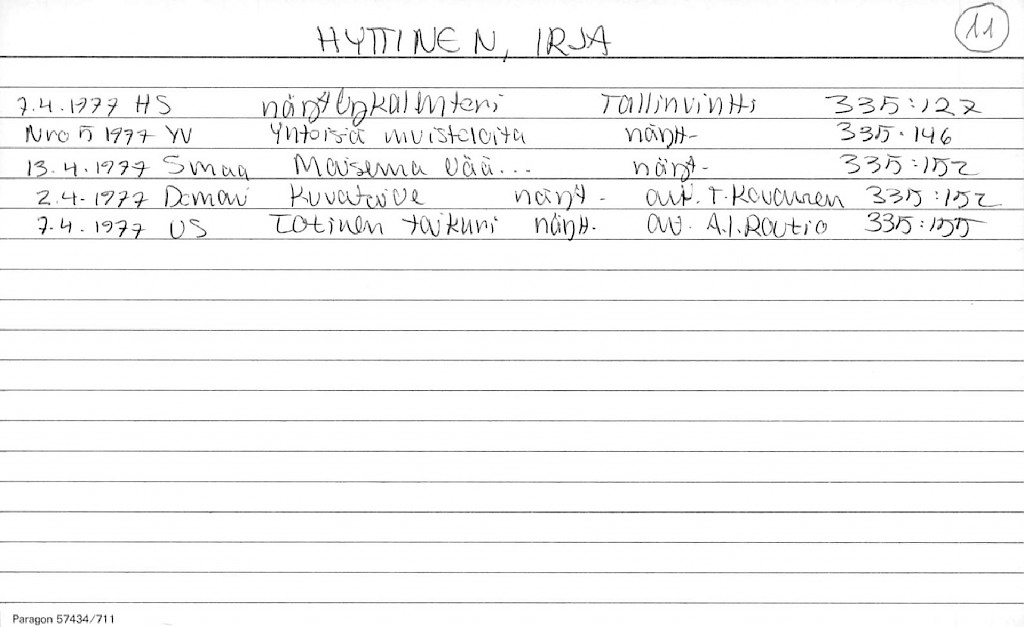 HYTTINEN, IRJA 11
7.4.1977 HS näyttelykalenteri Tallinvintti 335:127
Nro 5 1977 YV Yhteisiä muisteloita näytt- 335.146
13.4.1977 Smaa Maisema elää... näytt- 335:152
2.4-1977 Demari Kuvatarve näytt- avt. T. Kovanen 335:152
7.4.1977 US Totinen taikuri näytt. avt. A.I.Routio 335:155
Paragon 57434/711